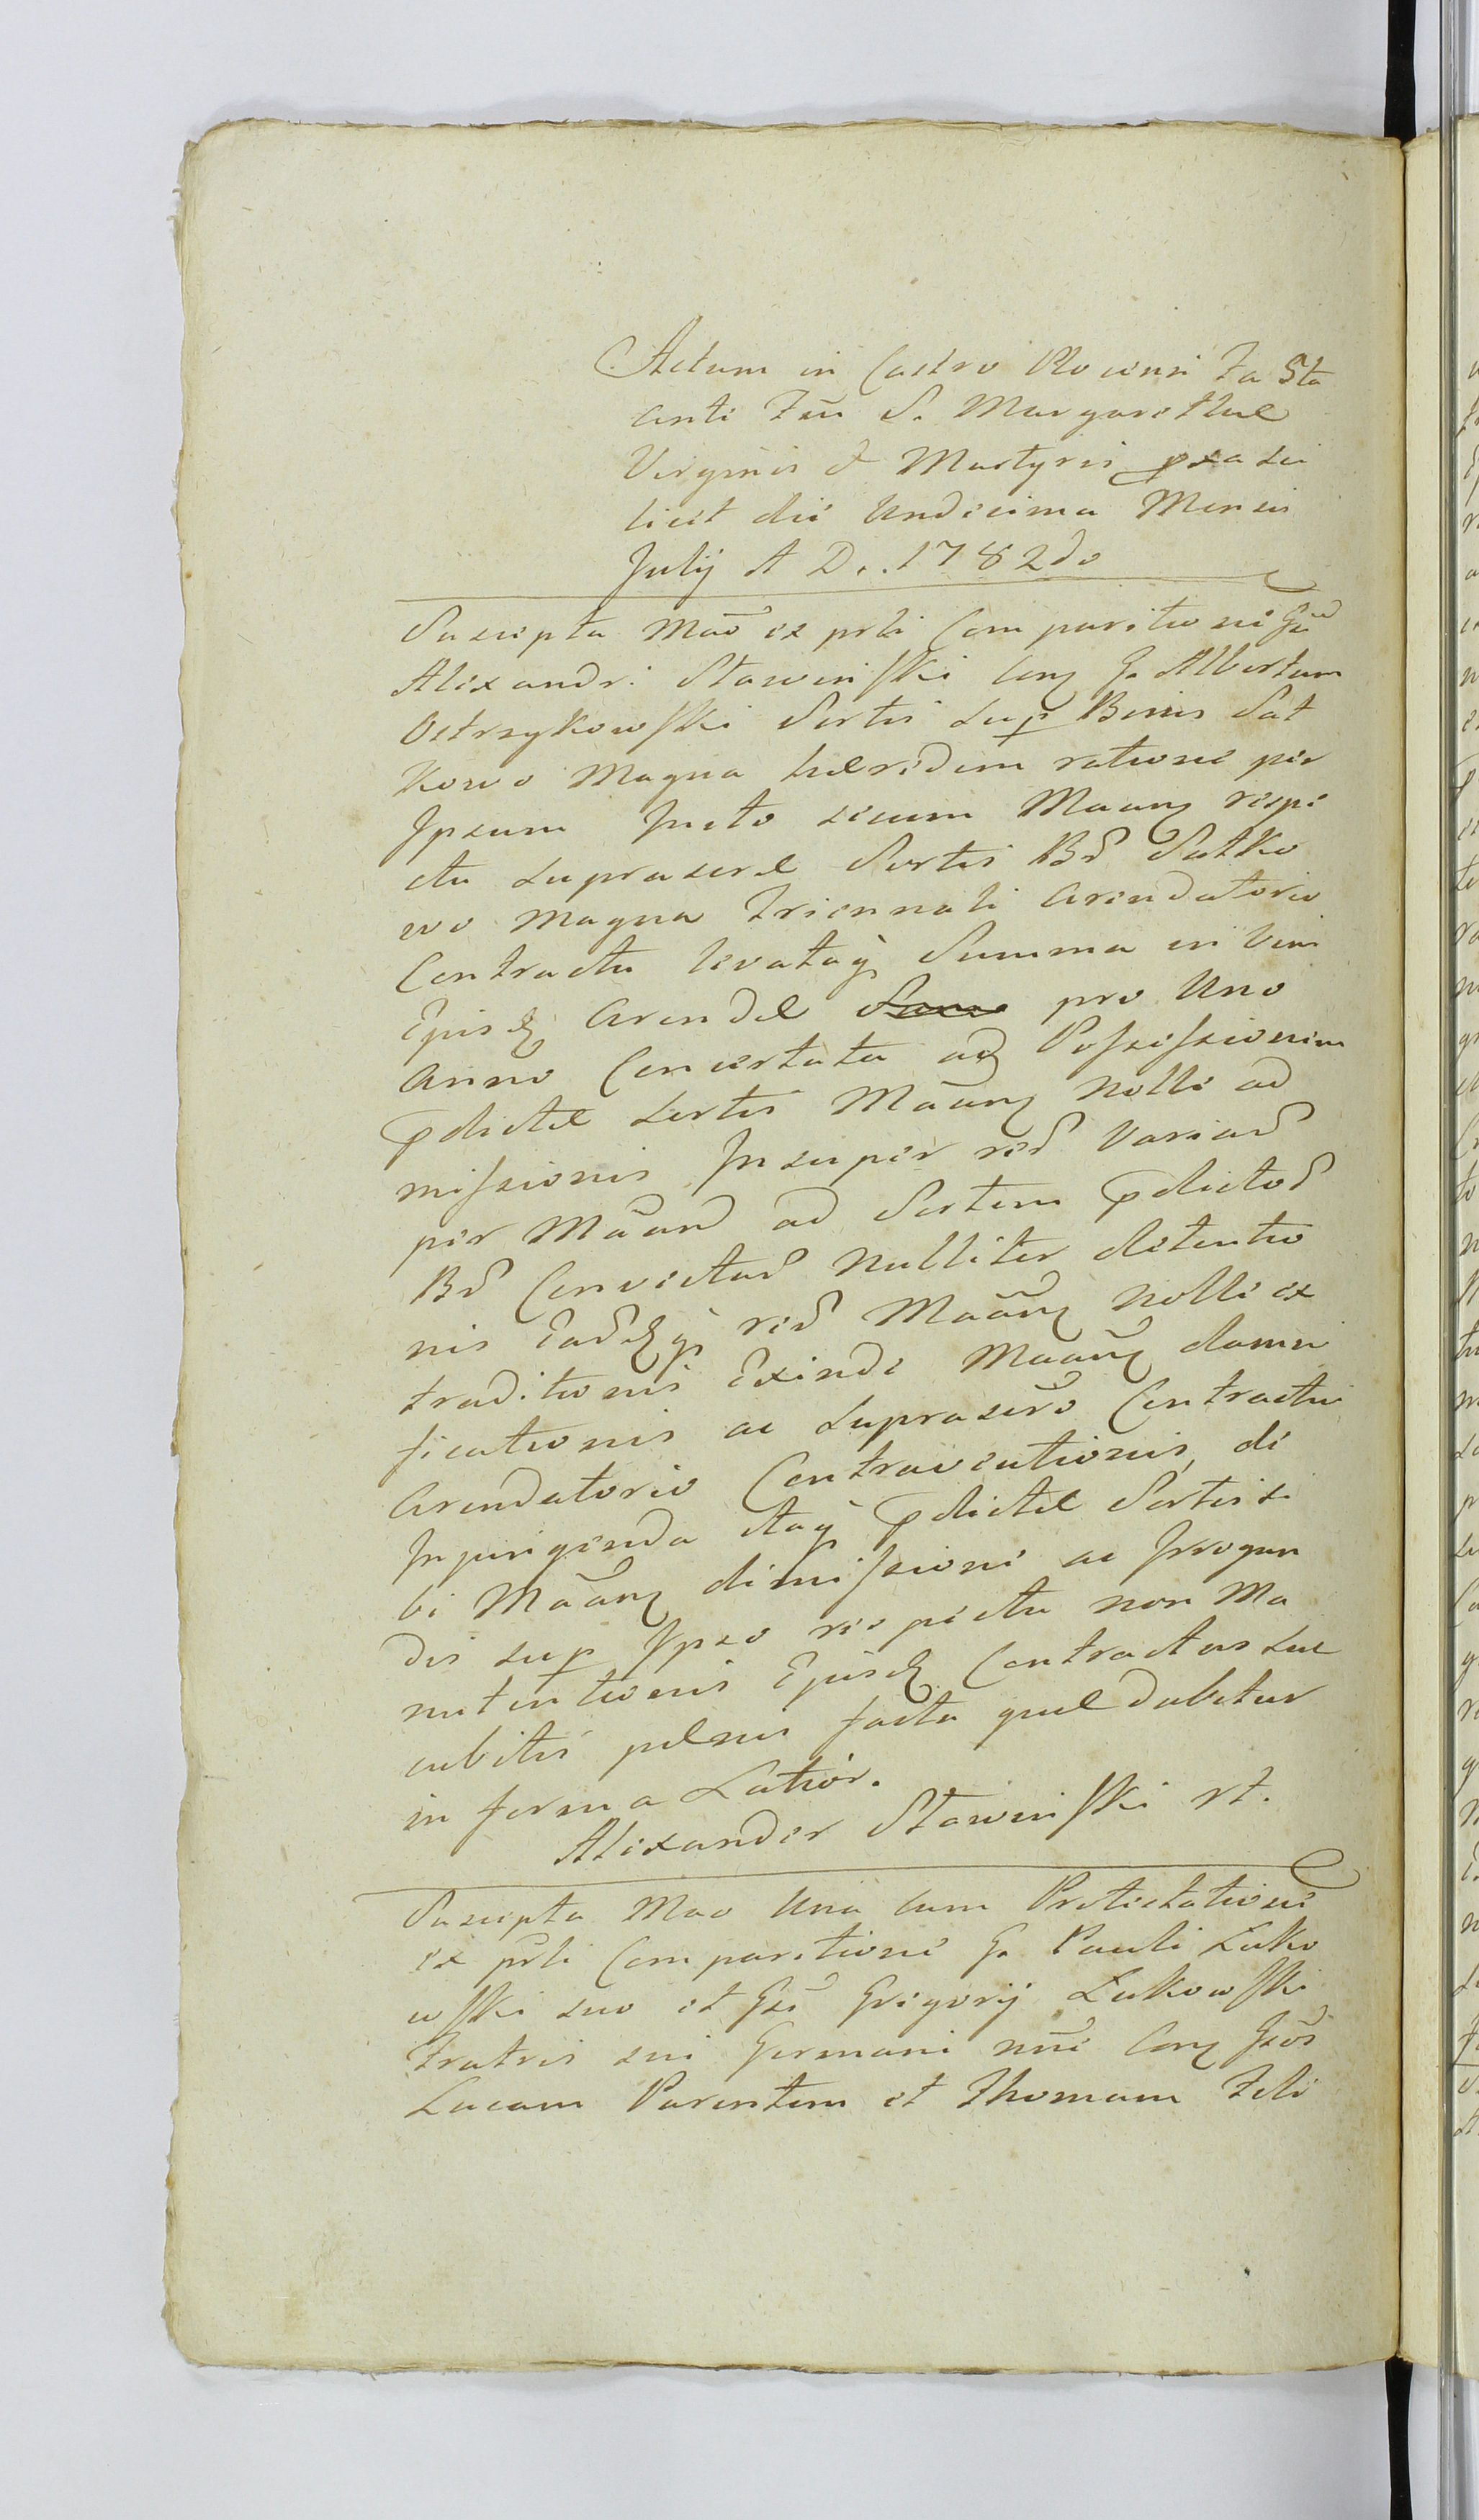 Actum in Castro Plocensi Fa 5ta
anti Festi S. Margarethae
Virginis & Martyris pxa sci
licet die Undecima Mensis
Julij A D. 1782do
Suscepta Mão ex prli Comparitione Gsi
Alexandri Sławinski conq G. Albertum
Ostrzykowski Sortis sup Bonis Sat
kowo Magna haeredem ratione per
Ipsum Inito secum Maanq respe
ctu suprascrae Sortis Bd Satko
wo Magna triennali Arendatorio
Contractu levataq Summa in vim
Ejusdq Arendae pro Uno
Anno Concertata adq Possessionem
pdictae sortis Mãanq Nolle ad
missionis Insuper rerd Variard
per Mãand ad Sortem pdictod
Bd Convectard Nulliter detentio
nis Eardqq rerd Mãanq Nolle ex
traditionis Exinde Mãanq damni
ficationis ac suprascro Contractui
Arendatorio Contraventionis, de
Injungenda Itaq pdictae Sortis si
bi Mãanq dimissione ac Irrogan
dis sup Ipso respectu non Ma
nutentionis Ejusdq Contractus suc
cubitis paenis facta quae dabitur
in forma Latior.
Alexander Sławinski rt.
Suscepta Mao Una cum Protestatione
ex prli Comparitione G. Pauli Łuko
wski suo et Gsi Gregorij Łukowski
Fratris sui Germani nne conq Gsos
Lucam Parentem et Thomam Fili